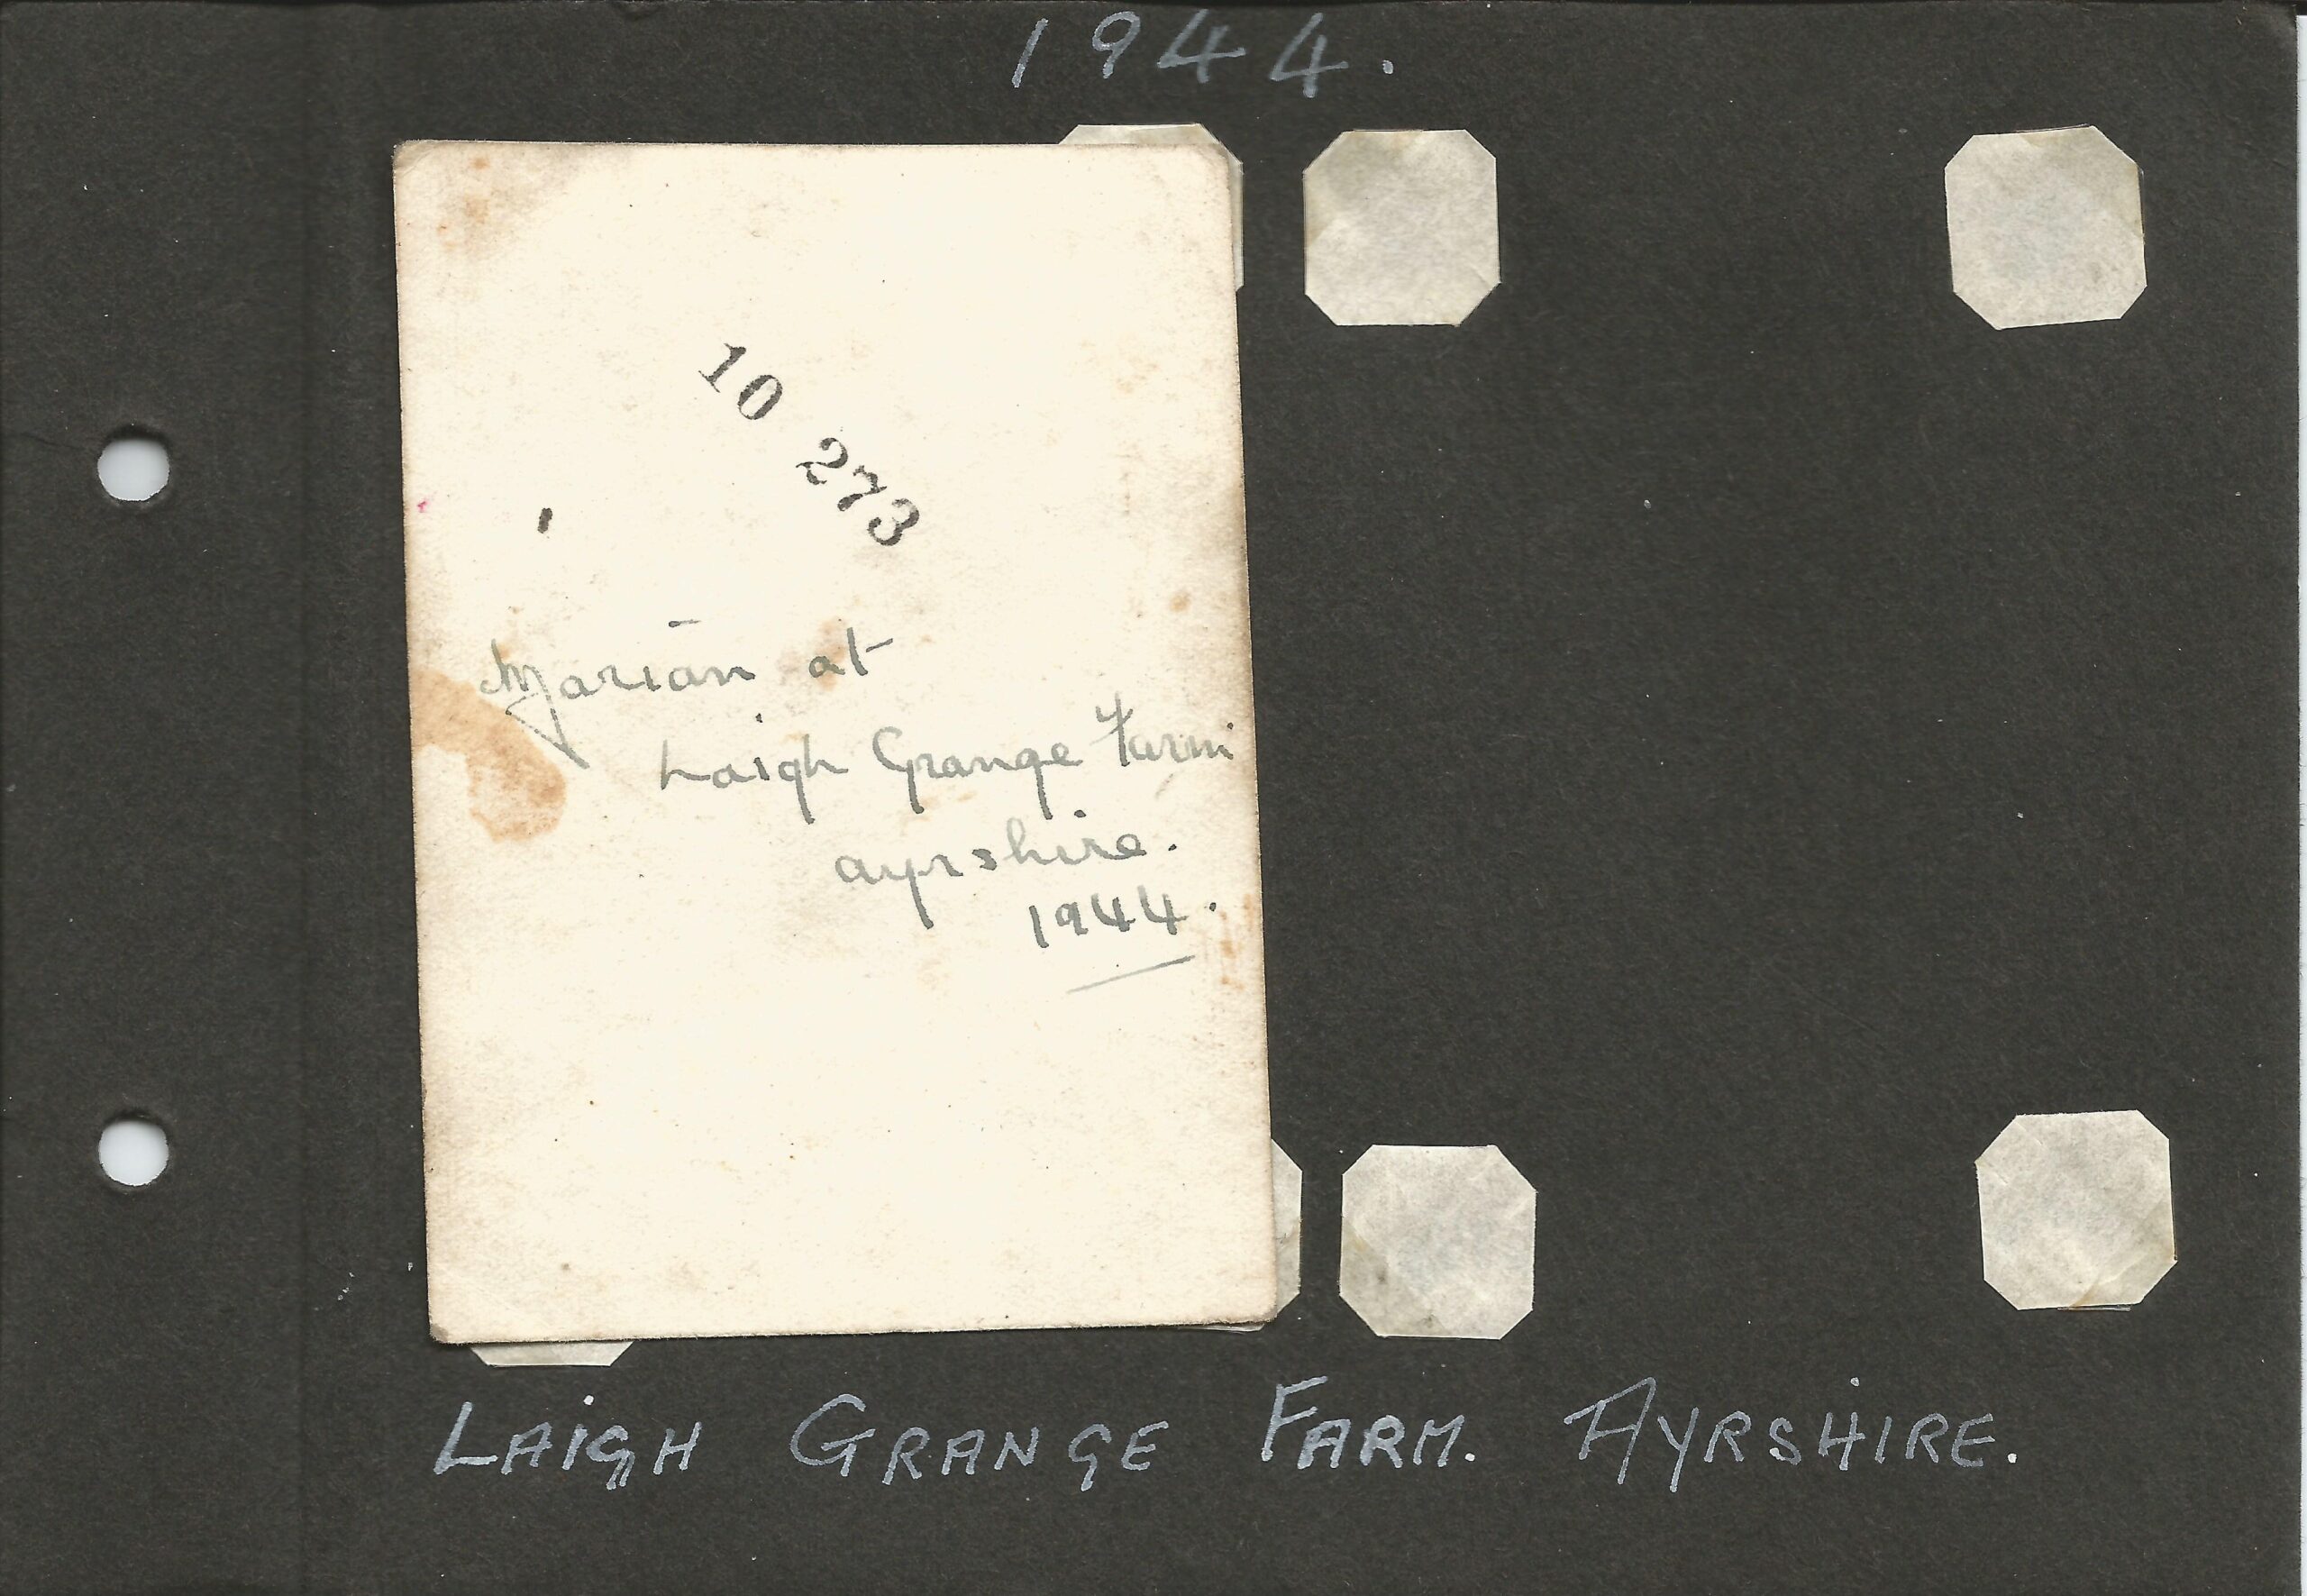 1944.
10 273
Marian at
Laigh Grange Farm
Ayrshire.
1944.
LAIGH GRANGE FARM. AYRSHIRE.